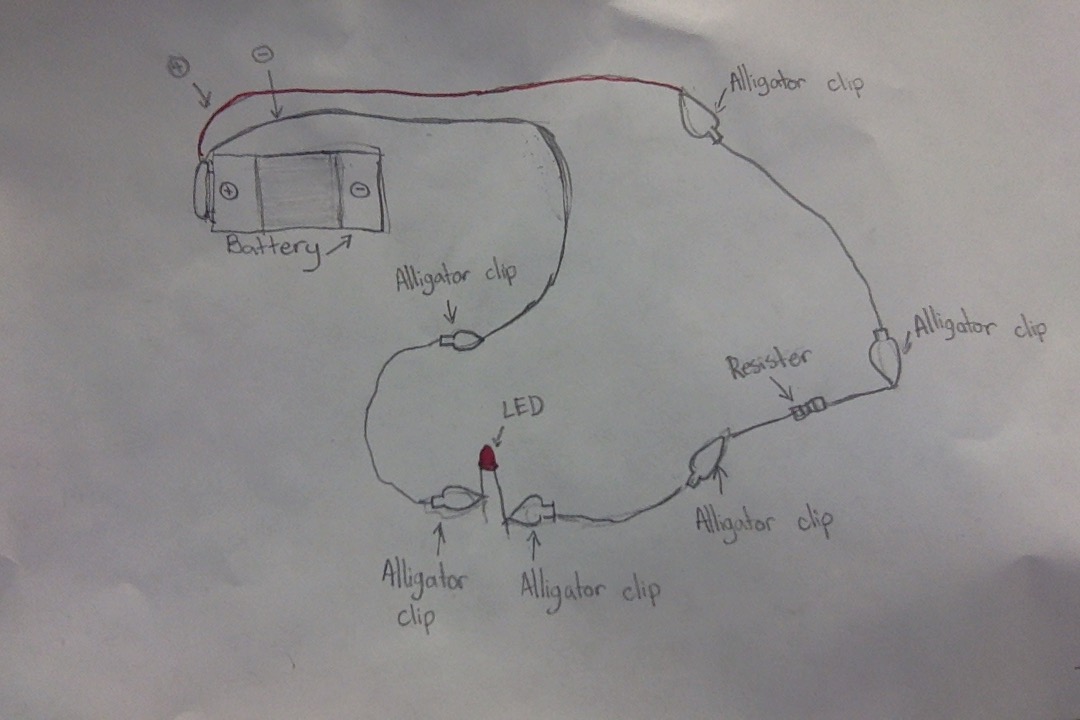 ⊕
⊖
Alligator clip
⊕ ⊖
Battery
Alligator clip
Alligator clip
Resister
LED
Alligator clip
Alligator
clip
Alligator clip